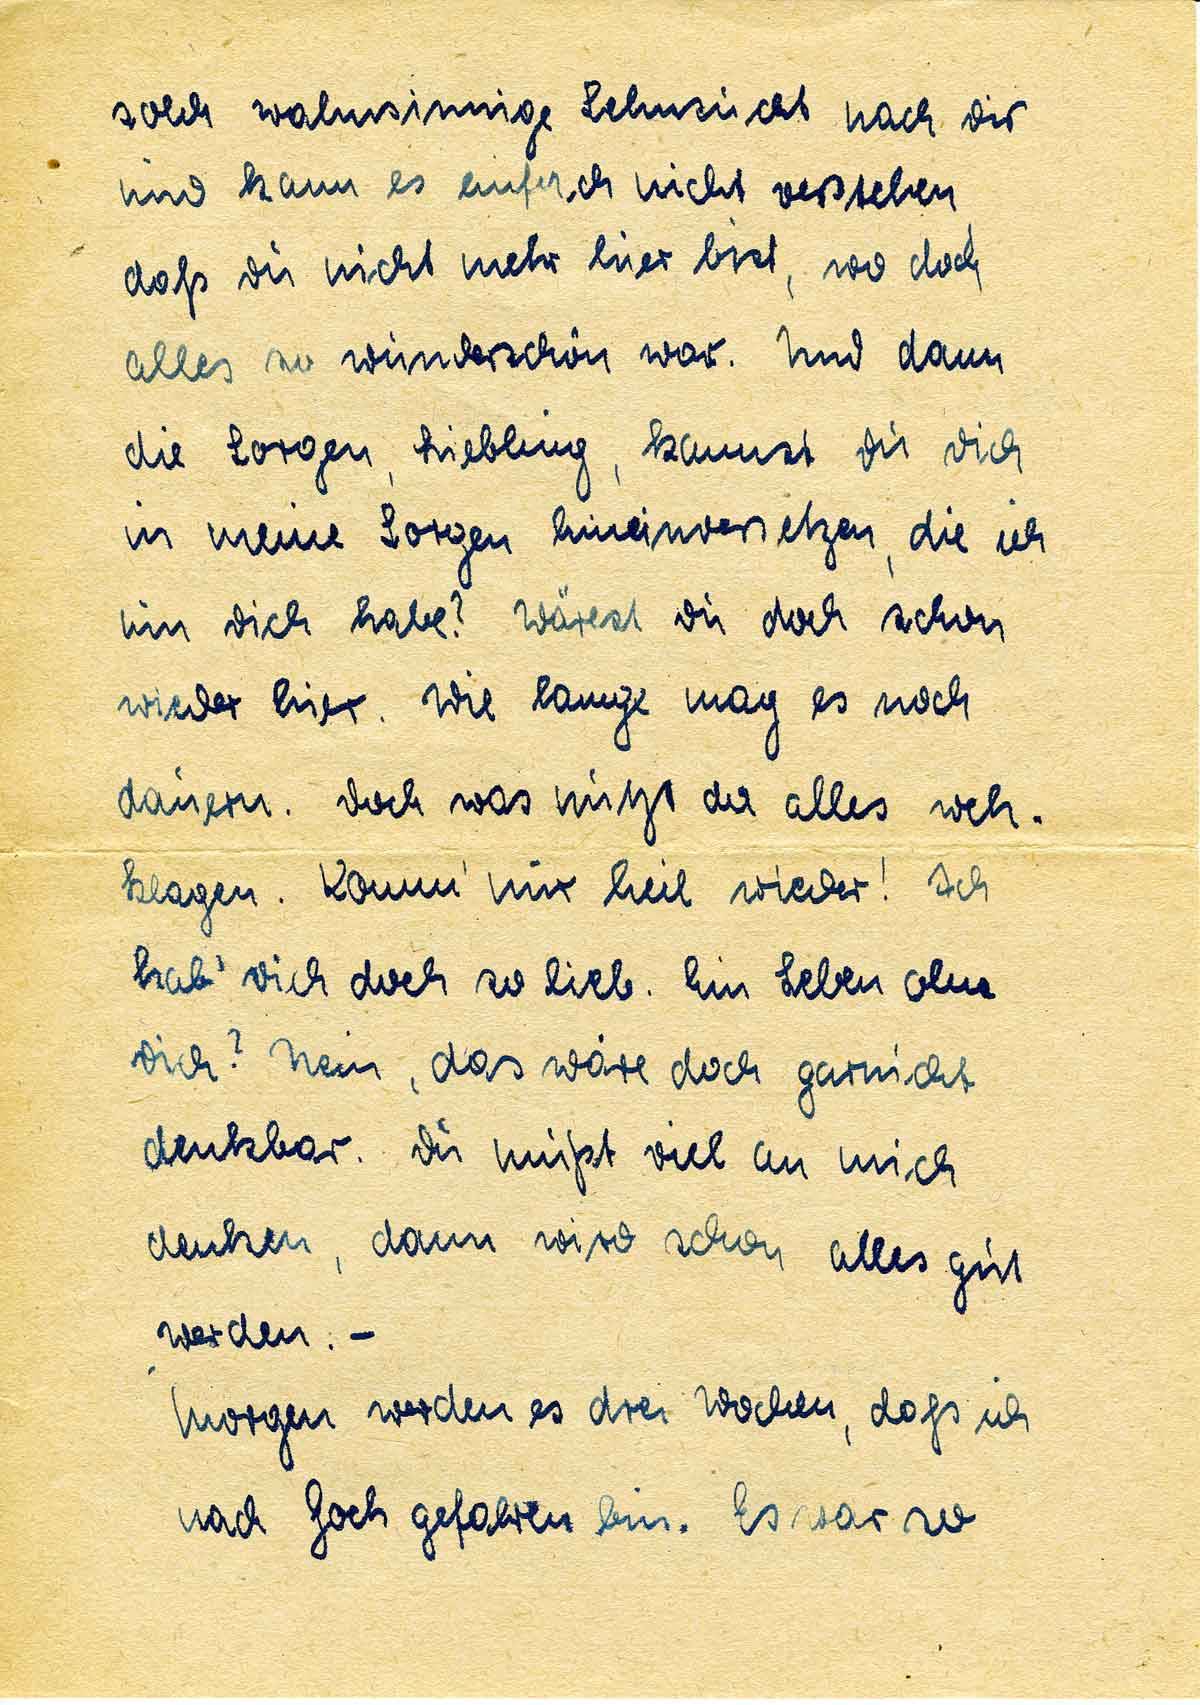 solch wahnsinnige Sehnsucht nach dir
und kann es einfach nicht verstehen
daß du nicht mehr hier bist, wo doch
alles so wunderschön war. Und dann
die Sorgen, Liebling, kannst du dich
in meine Sorgen hineinversetzen, die ich
um dich habe? Wärest du doch schon
wieder hier. Wie lange mag es noch
dauern. Doch was nützt da alles weh-
klagen. Komm' nur heil wieder! Ich
hab' dich doch so lieb. Ein Leben ohne
dich? Nein, das wäre doch garnicht
denkbar. Du mußt viel an mich
denken, dann wird schon alles gut
werden. –
Morgen werden es drei Wochen, daß ich
nach Goch gefahren bin. Es war so